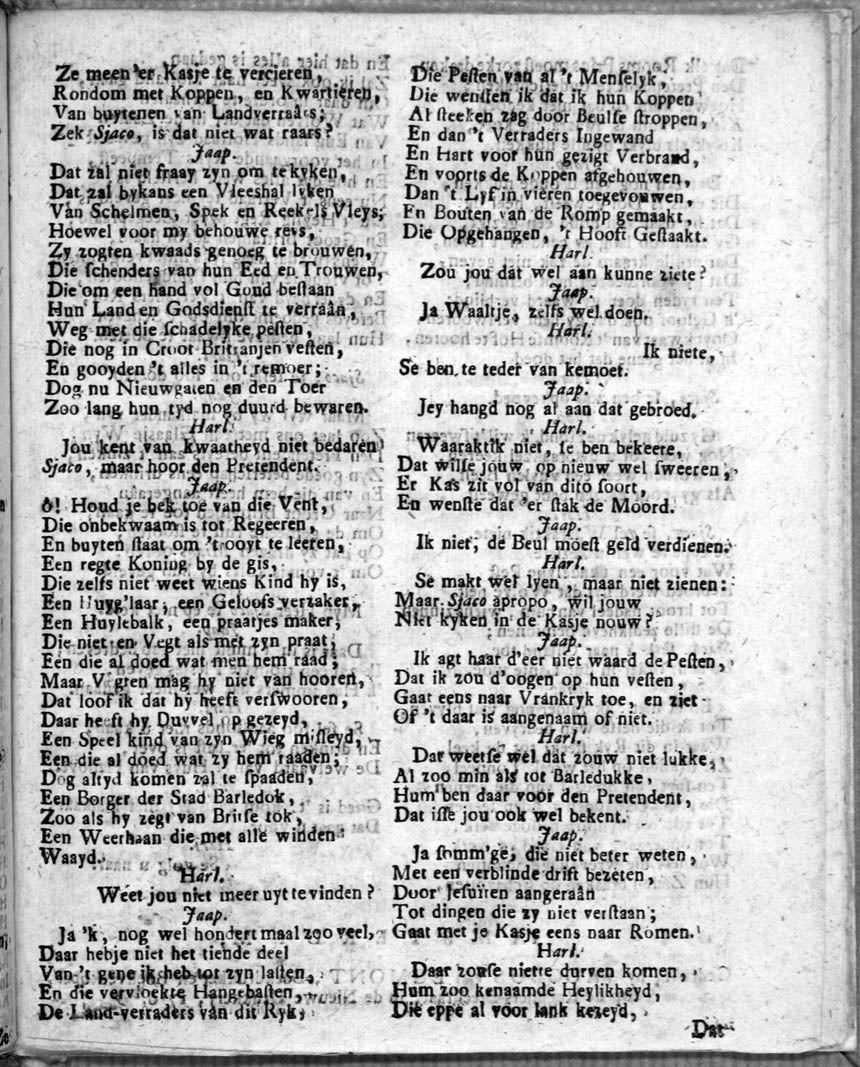 Ze meen'er Kasje te vercieren,
Rondom met Koppen, en Kwartieren,
Van buytenen van Landverraârs;
Zek Sjaco, is dat niet wat raars?
Jaap.
Dat zal niet fraay zyn om te kyken,
Dat zal bykans een Vleeshal lyken
Van Schelmen, Spek en Reekels Vleys;
Hoewel voor my behouwe reys,
Zy zogten kwaads genoeg te brouwen,
Die schenders van hun Eed en Trouwen,
Die om een hand vol Goud bestaan
Hun Land en Godsdienst te verraân,
Weg met die schadelyke pesten,
Die nog in Groot Brittanjen vesten,
En gooyden 't alles in 't remoer;
Dog nu Nieuwgaten en den Toer
Zoo lang hun tyd nog duurd bewaren.
Harl.
Jou kent van kwaatheyd niet bedaren
Sjaco, maar hoor den Pretendent.
Jaap.
ô! Houd je bek toe van die Vent,
Die onbekwaam is tot Regeeren,
En buyten staat om 't ooyt te leeren,
Een regte Koning by de gis,
Die zelfs niet weet wiens Kind hy is,
Een Huyg'laar, een Geloofs verzaker,
Een Huylebalk, een praatjes maker;
Die niet en Vegt als met zyn praat;
Een die al doed wat men hem raad;
Maar Vegten mag hy niet van hooren,
Dat loof ik dat hy heeft verswooren,
Daar heeft hy Duyvel op gezeyd,
Een Speel kind van zyn Wieg misleyd,
Een die al doed wat zy hem raaden;
Dog altyd komen zal te spaaden,
Een Borger der Stad Barledok,
Zoo als hy zegt van Britse tok,
Een Weerhaan die met alle winden
Waayd.
Harl.
Weet jou niet meer uyt te vinden?
Jaap.
Ja 'k, nog wel hondert maal zoo veel,
Daar hebje niet het tiende deel
Van 't gene ik heb tot zyn lasten,
En die vervloekte Hangebasten,
De Land-verraders van dit Ryk,
Die Pesten van al 't Menselyk,
Die wensten ik dat ik hun Koppen
Al steeken zag door Beulse stroppen,
En dan 't Verraders Ingewand
En Hart voor hun gezigt Verbrand,
En voorts de Koppen afgehouwen,
Dan 't Lyf in vieren toegevouwen,
En Bouten van de Romp gemaakt,
Die Opgehangen, 't Hooft Gestaakt.
Harl.
Zou jou dat wel aan kunne ziete?
Jaap.
Ja Waaltje, zelfs wel doen.
Harl.
Ik niete,
Se ben te teder van kemoet.
Jaap.
Jey hangd nog al aan dat gebroed.
Harl.
Waaraktik niet, se ben bekeere,
Dat wilse jouw op nieuw wel sweeren,
Er Kas zit vol van dito soort,
En wenste dat 'er stak de Moord.
Jaap.
Ik niet, de Beul moest geld verdienen.
Harl.
Se makt wel lyen, maar niet zienen:
Maar Sjaco apropo, wil jouw
Niet kyken in de Kasje nouw?
Jaap.
Ik agt haar d'eer niet waard de Pesten,
Dat ik zou d'oogen op hun vesten,
Gaat eens naar Vrankryk toe, en ziet
Of 't daar is aangenaam of niet.
Harl.
Dat weetse wel dat zouw niet lukke,
Al zoo min als tot Barledukke,
Hum ben daar voor den Pretendent,
Dat isse jou ook wel bekent.
Jaap.
Ja somm'ge, die niet beter weten,
Met een verblinde drift bezeten,
Door Jesuiten aangeraân
Tot dingen die zy niet verstaan;
Gaat met je Kasje eens naar Romen.
Harl.
Daar zouse niette durven komen,
Hum zoo kenaamde Heylikheyd,
Die eppe al voor lank kezeyd,
Dat